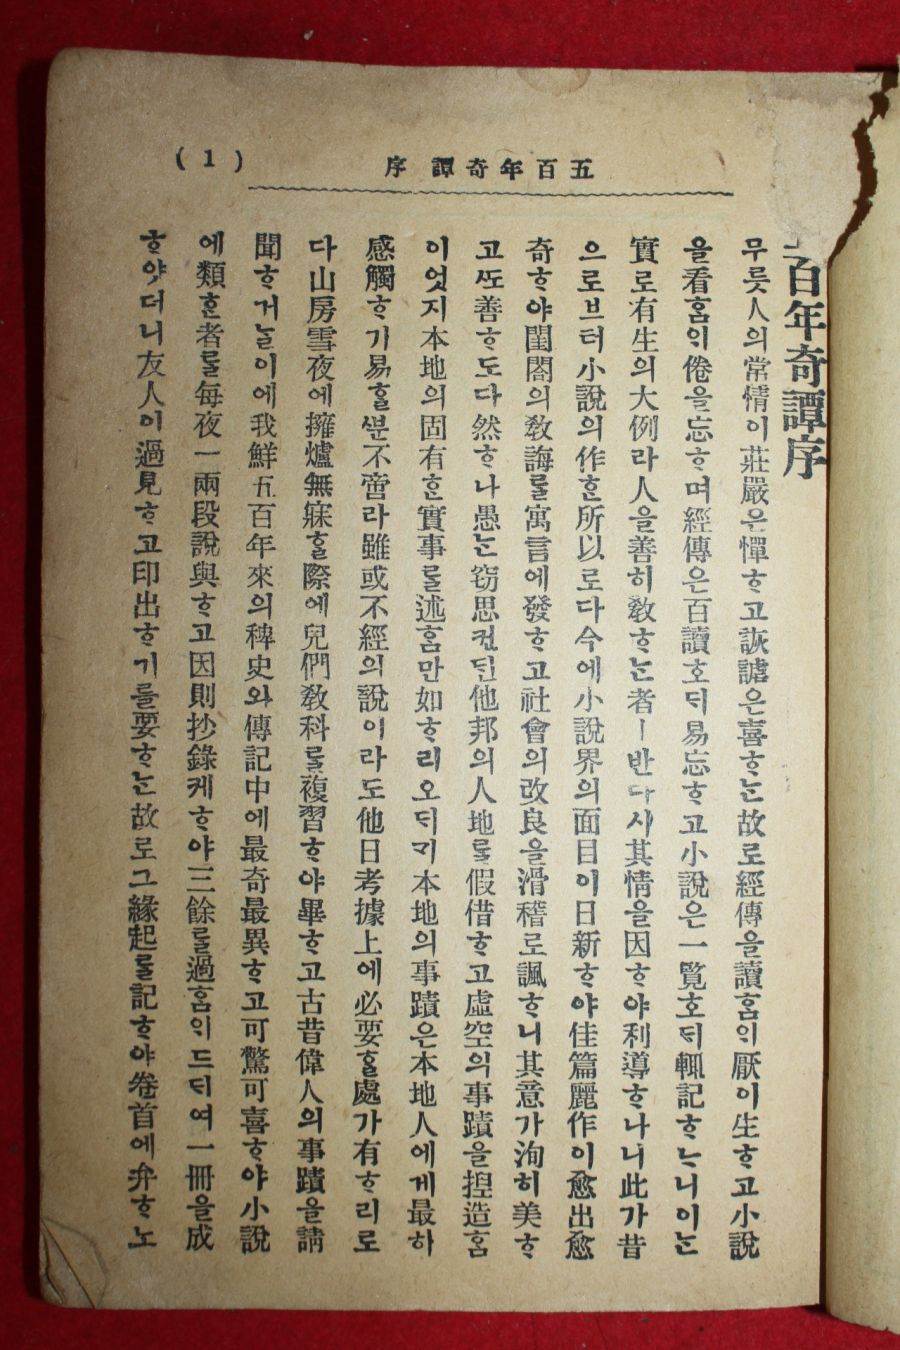 五百年奇譚 序
( 1 )
百年奇譚序
무릇人의常情이莊嚴은憚ᄒᆞ고詼謔은喜ᄒᆞᄂᆞᆫ故로經傳을讀ᄒᆞᆷᄋᆡ厭이生ᄒᆞ고小說
을看ᄒᆞᆷᄋᆡ倦을忘ᄒᆞ며經傳은百讀호ᄃᆡ易忘ᄒᆞ고小說은一覽호ᄃᆡ輒記ᄒᆞᄂᆞ니이ᄂᆞᆫ
實로有生의大例라人을善히敎ᄒᆞᄂᆞᆫ者ㅣ반다시其情을因ᄒᆞ야利導ᄒᆞ나니此가昔
으로브터小說의作ᄒᆞᆫ所以로다今에小說界의面目이日新ᄒᆞ야佳篇麗作이愈出愈
奇ᄒᆞ야閨閤의敎誨ᄅᆞᆯ寓言에發ᄒᆞ고社會의改良을滑稽로諷ᄒᆞ니其意가洵히美ᄒᆞ
고ᄯᅩ善ᄒᆞ도다然ᄒᆞ나愚ᄂᆞᆫ窃思컨ᄃᆡᆫ他邦의人地ᄅᆞᆯ假借ᄒᆞ고虛空의事蹟을揑造ᄒᆞᆷ
이엇지本地의固有ᄒᆞᆫ實事ᄅᆞᆯ述ᄒᆞᆷ만如ᄒᆞ리오ᄃᆡ기本地의事蹟은本地人에게最히
感觸ᄒᆞ기易ᄒᆞᆯᄲᅮᆫ不啻라雖或不經의說이라도他日考據上에必要ᄒᆞᆯ處가有ᄒᆞ리로
다山房雪夜에擁爐無寐ᄒᆞᆯ際에兒們敎科ᄅᆞᆯ複習ᄒᆞ야畢ᄒᆞ고古昔偉人의事蹟을請
聞ᄒᆞ거ᄂᆞᆯ이에我鮮五百年來의稗史와傳記中에最奇最異ᄒᆞ고可驚可喜ᄒᆞ야小說
에類ᄒᆞᆫ者ᄅᆞᆯ每夜一兩段說與ᄒᆞ고因則抄錄케ᄒᆞ야三餘ᄅᆞᆯ過ᄒᆞᆷᄋᆡ드ᄃᆡ여一冊을成
ᄒᆞ얏더니友人이過見ᄒᆞ고印出ᄒᆞ기를要ᄒᆞᄂᆞᆫ故로그緣起ᄅᆞᆯ記ᄒᆞ야卷首에弁ᄒᆞ노